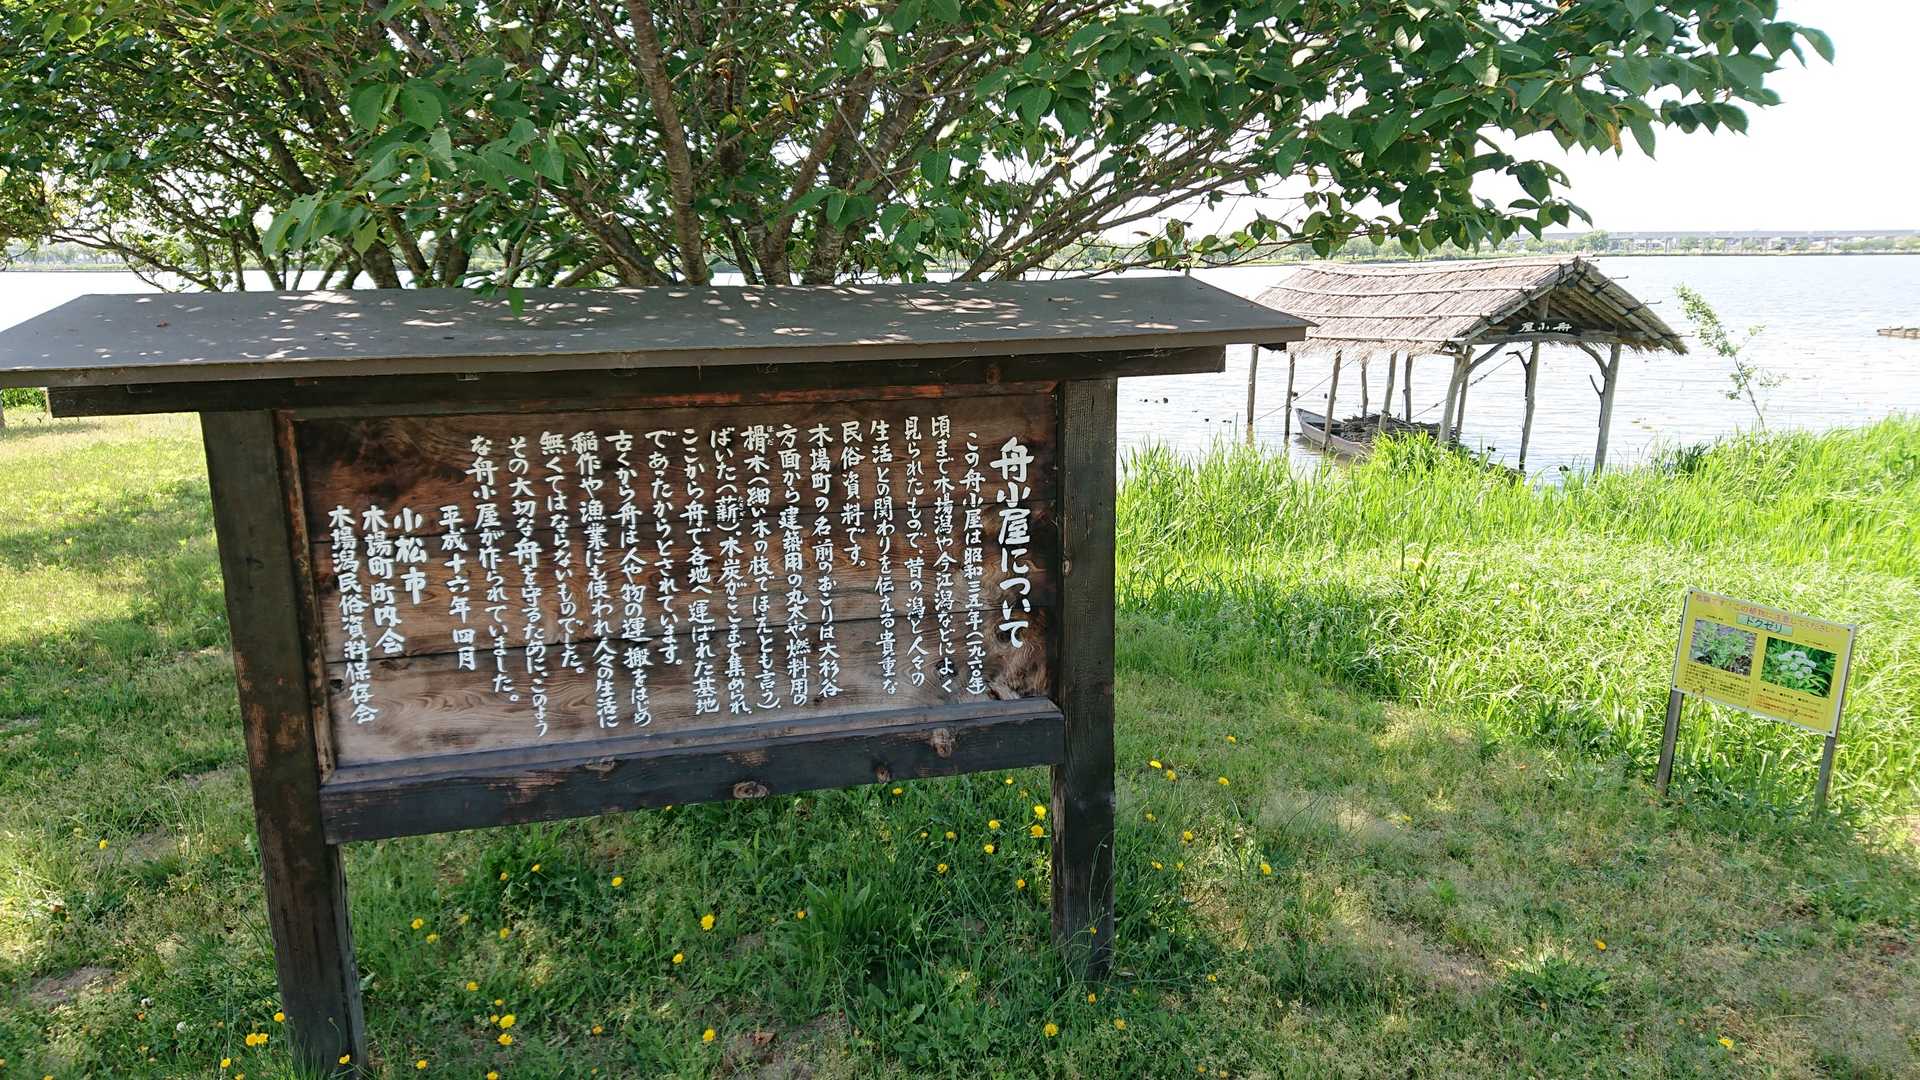 舟小屋について
この舟小屋は昭和三五年(一九六〇年)
頃まで木場潟や今江潟などによく
見られたもので、昔の潟と人々の
生活との関わりを伝える貴重な
民俗資料です。
木場町の名前のおこりは大杉谷
方面から建築用の丸太や燃料用の
榾木(細い木の枝でほえとも言う)、
ばいた(薪)、木炭がここまで集められ、
ここから舟で各地へ運ばれた基地
であたからとされています。
古くから舟は人や物の運搬をはじめ
稲作や漁業にも使われ人々の生活に
無くてはならないものでした。
その大切な舟を守るために、このよう
な舟小屋が作られていました。
平成十六年四月
小松市
木場町町内会
木場潟民俗資料保存会
舟小屋
危険です!この植物に注意してください!
ドクゼリ